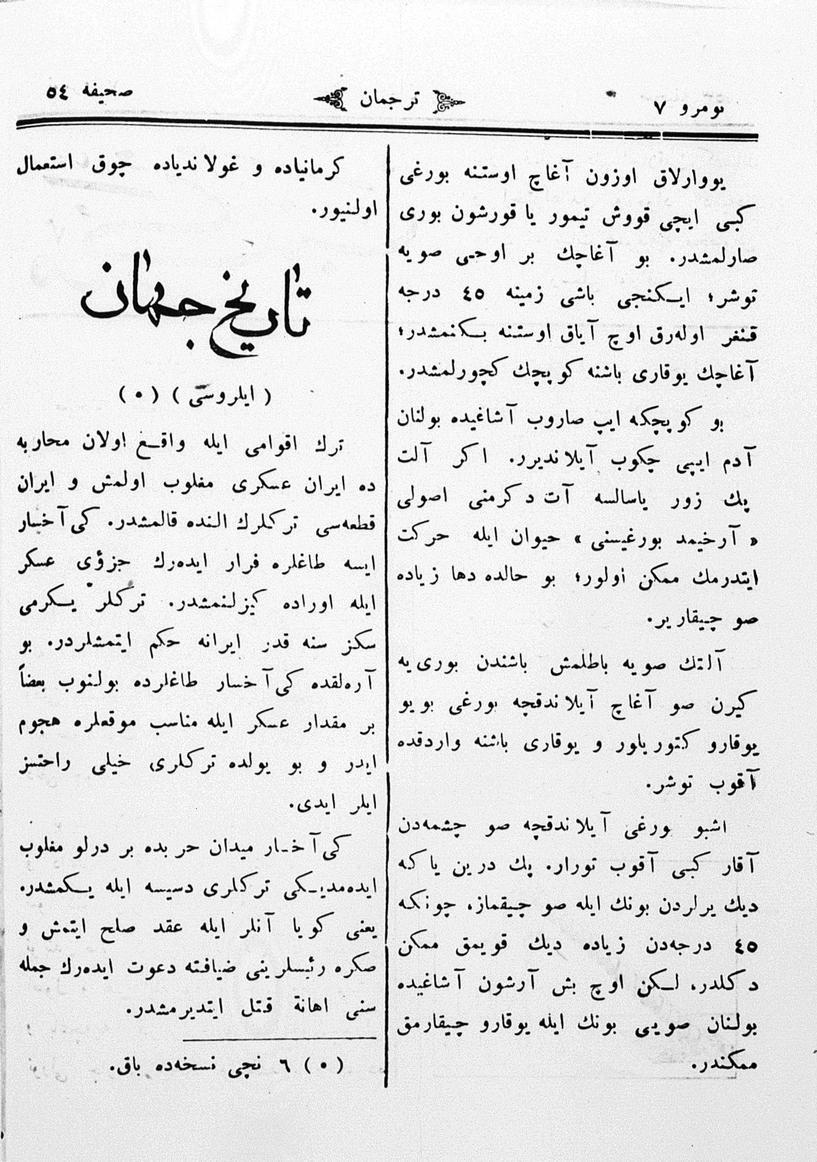 نومرو ٧
ترجمان
صحیفه ٥٤
یووارلاق اوزون آغاچ اوستنه بورغی
کبی ایچی قووش تیمور یا قورشون بوری
صارلمشدر. بو آغاچك بر اوجی صویه
توشر؛ ایكنجی باشی زمینه ٤٥ درجه
قنغر اولەرق اوچ آیاق اوستنه بكنمشدر؛
آغاچك یوقاری باشنه كوپچك كچورلمشدر.
بو كوپچكه ایپ صاروب آشاغیده بولنان
آدم ایپی چكوب آیلاندیرر. اكر آلت
پك زور یاسالسه آت دكرمنی اصولی
« آرخیمد بورغیسنی » حیوان ایله حركت
ایتدرمك ممكن اولور؛ بو حالده دها زیاده
صو چیقاریر.
آلتك صویه باطلمش باشندن بوری‌یه
كیرن صو آغاچ آیلاندقچه بورغی بویو
یوقارو كتوریلور و یوقاری باشنه واردقده
آقوب توشر.
اشبو بورغی آیلاندقچه صو چشمه‌دن
آقار كبی آقوب تورار. پك درین یا كه
دیك یرلردن بونك ایله صو چیقماز، چونكه
٤٥ درجه‌دن زیاده دیك قویمق ممكن
دكلدر، لكن اوچ بش آرشون آشاغیده
بولنان صویی بونك ایله یوقارو چیقارمق
ممكندر.
كرمانیاده و غولاندیاده چوق استعمال
اولنیور.
تاریخ جهان
( ایلروسی ) ( ٥ )
ترك اقوامی ایله واقع اولان محاربه
ده ایران عسكری مغلوب اولمش و ایران
قطعه‌سی تركلرك النده قالمشدر. كی آخسار
ایسه طاغلره فرار ایدەرك جزؤی عسكر
ایله اوراده كیزلنمشدر. تركلر یكرمی
سكز سنه قدر ایرانه حكم ایتمشلردر. بو
آرەلقده كی آخسار طاغلرده بولنوب بعضاً
بر مقدار عسكر ایله مناسب موقعلره هجوم
ایدر و بو یولده تركلری خیلی راحتسز
ایلر ایدی.
كی آخسار میدان حربده بر درلو مغلوب
ایده‌مدیكی تركلری دسیسه ایله یكمشدر.
یعنی كویا آنلر ایله عقد صلح ایتمش و
صكره رئیسلرینی ضیافته دعوت ایدەرك جمله
سنی اهانة قتل ایتدیرمشدر.
( ٥ ) ٦ نچی نسخه‌ده باق.